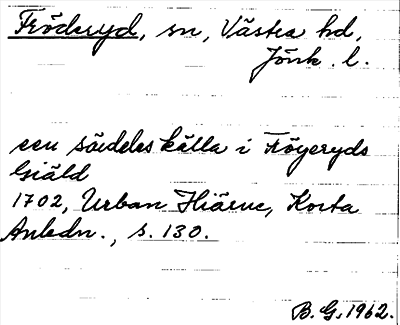 Fröderyd, sn, Västra hd,
Jönk. l.
een såideles källa i Fröyeryds
Giäld
1702, Urban Hiärne, Korta
Anledn., s. 130.
B. G. 1962.